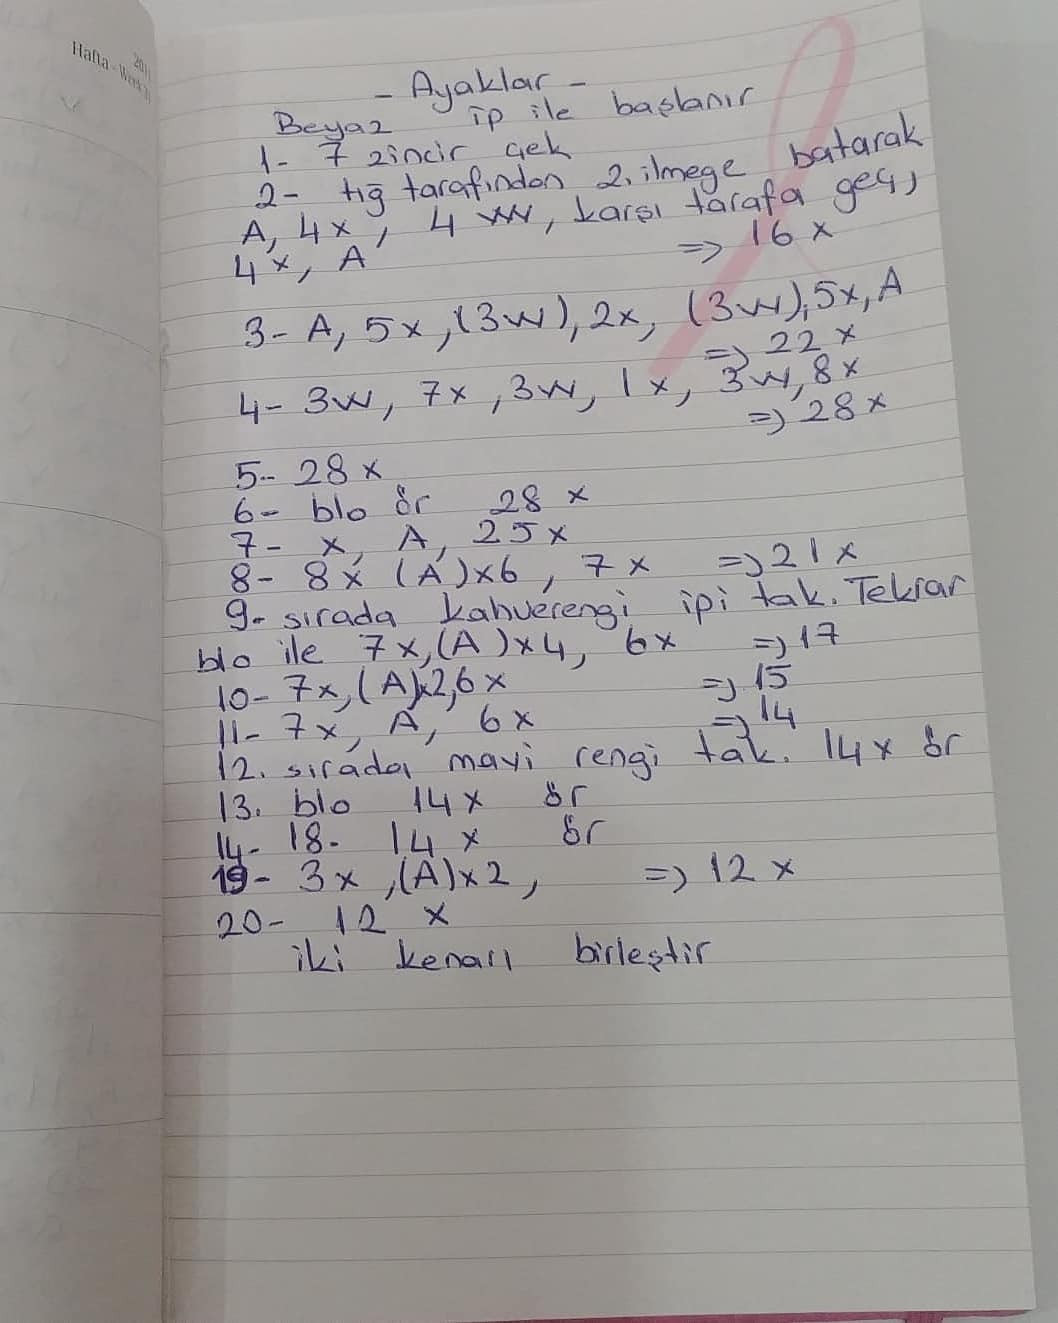 2011
Hafta - Week
- Ayaklar -
Beyaz ip ile başlanır
1- 7 zincir çek
2- tığ tarafından 2. ilmeğe batarak
A, 4x, 4 w, karşı tarafa geç,
4x, A => 16 x
3- A, 5x, (3w), 2x, (3w), 5x, A
=> 22 x
4- 3w, 7x, 3w, 1x, 3w, 8x
=> 28 x
5- 28 x
6- blo ör 28 x
7- x, A, 25x
8- 8x (A)x6, 7x => 21x
9- sırada kahverengi ipi tak. Tekrar
blo ile 7x, (A)x4, 6x => 17
10- 7x, (A)x2, 6x => 15
11- 7x, A, 6x => 14
12. sırada mavi rengi tak. 14x ör
13. blo 14x ör
14- 18- 14 x ör
19- 3x, (A)x2, => 12 x
20- 12 x
iki kenarı birleştir